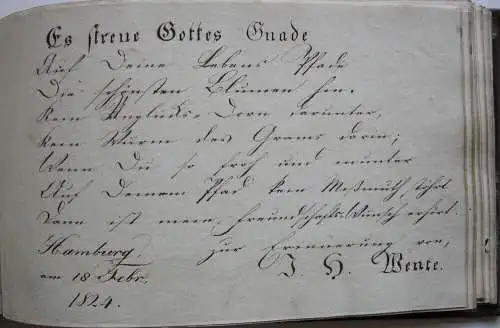 Es streue Gottes Gnade
Auf Deine Lebens Pfade
Die schönsten Blumen hin.
Kein Unglücks-Dorn darunter,
Kein Wurm des Grams darin;
Wenn Du so froh und munter
Auf Deinem Pfad kein Mißmuth stöhrt
Dann ist mein Freundschafts-Wunsch erhört.
Hamburg. zur Erinnerung von,
am 18 Febr. J H. Wente.
1824.